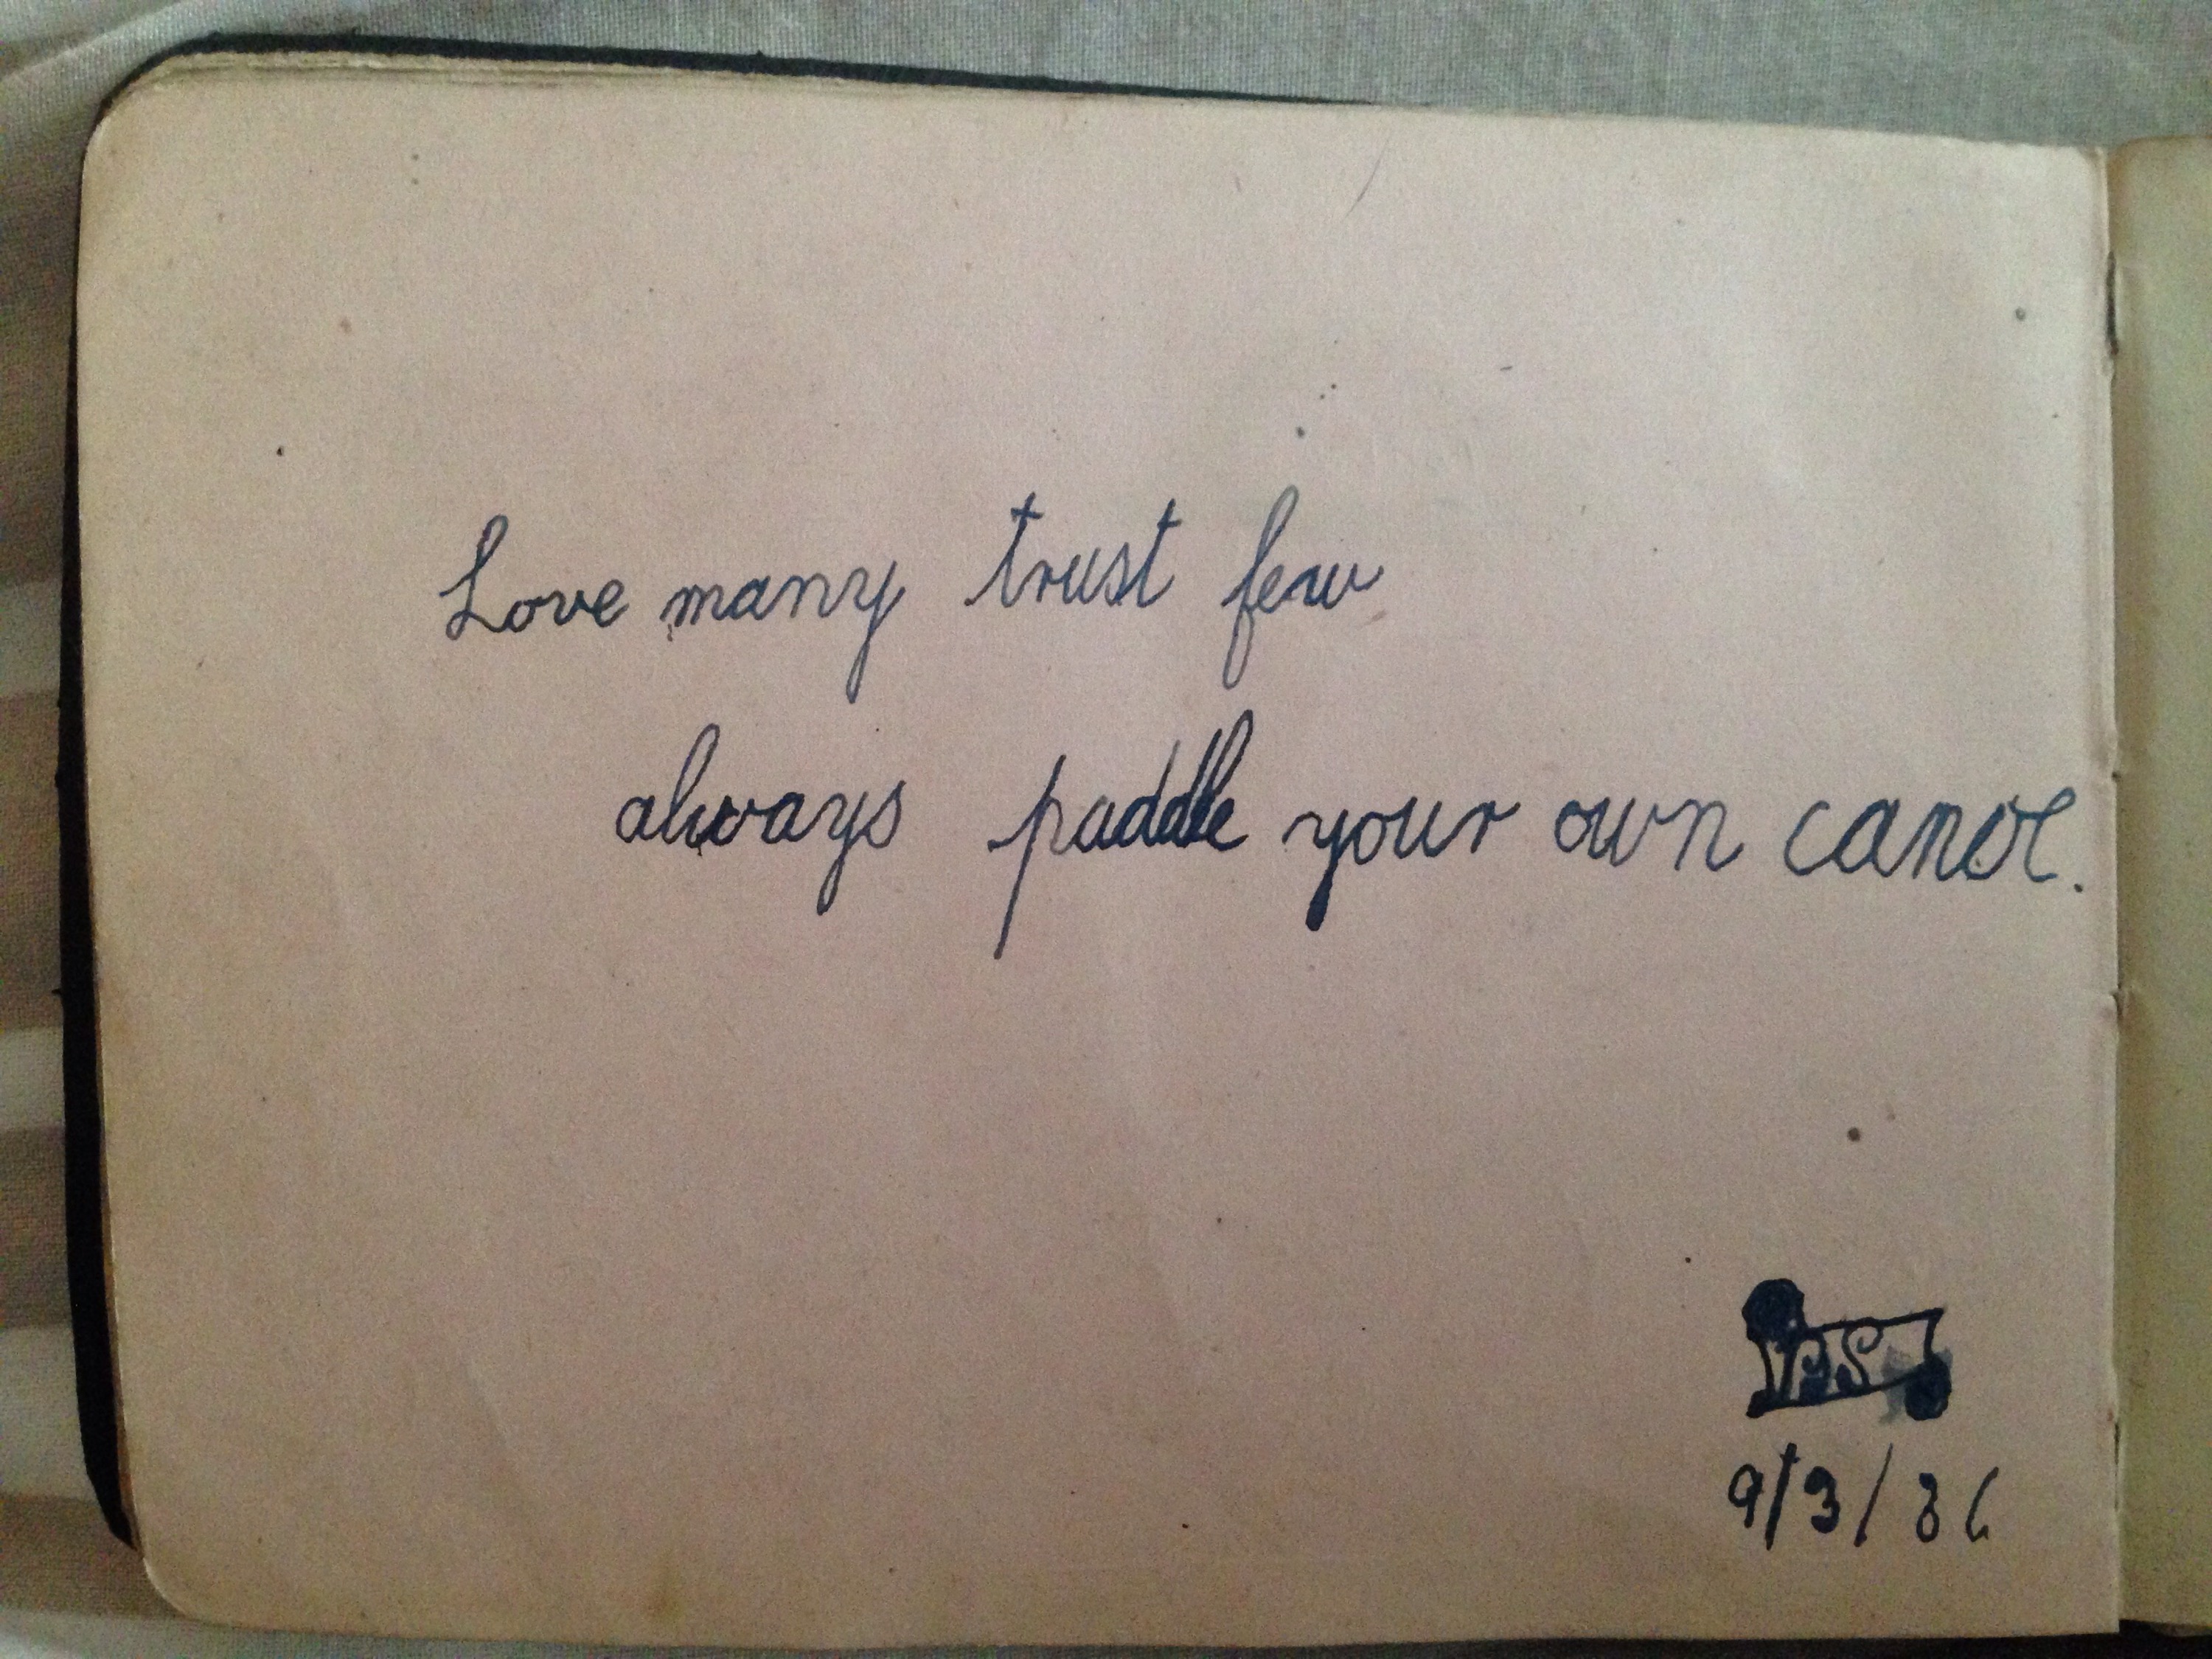 Love many trust few
always paddle your own canoe.
9/3/36